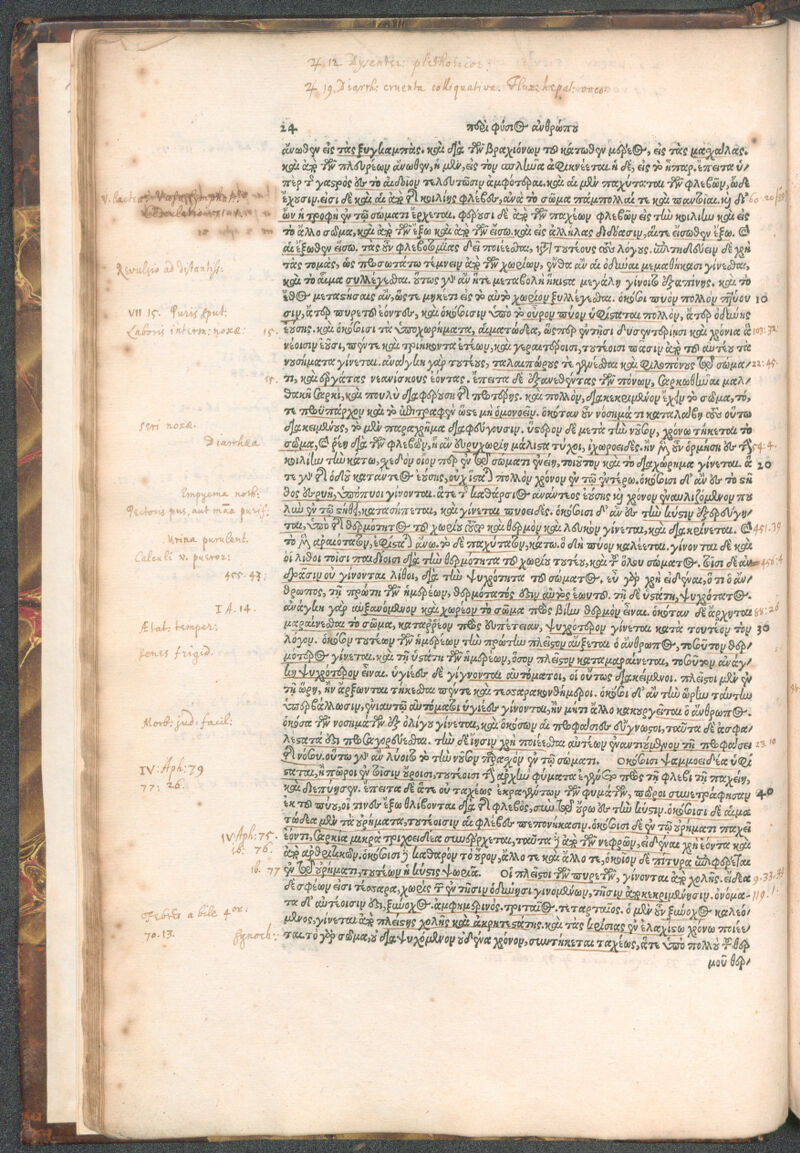 ♃ 12. Dysenter: plethoricos:
♃ 19. Diarrh: cruenta colliquativa. Flux: hepat:
24 περὶ φύσιος ἀνθρώπου
ἄνωθεν εἰς τὰς ξυγκαμπὰς. καὶ διὰ τῶν βραχιόνων τοῦ κάτωθεν μέρεος, εἰς τὰς μασχάλας.
καὶ ἀπὸ τῶν πλευρέων ἄνωθεν, ἡ μὲν, εἰς τὸν σπλῆνα ἀφικνέεται. ἡ δὲ, εἰς τὸ ἧπαρ. ἔπειτα ὑ/
πὲρ τ γαστρὸς ἐν τὸ αἰδοῖον τελευτῶσιν ἀμφότεραι. καὶ αἱ μὲν παχύταται τῶν φλεβῶν, ὧδε
ἔχουσιν. εἰσὶ δὲ καὶ αἱ ἀπὸ τῆς κοιλίης φλέβες, ἀνὰ τὸ σῶμα πάμπολλαί τε καὶ παντοῖαι. καὶ δι'
ὧν ἡ τροφὴ ἐν τῷ σώματι ἔρχεται. φέρουσι δὲ ἀπὸ τῶν παχέων φλεβῶν εἰς τὴν κοιλίην καὶ εἰς
τὸ ἄλλο σῶμα, καὶ ἀπὸ τῶν ἔξω καὶ ἀπὸ τῶν εἴσω. καὶ εἰς ἀλλήλας διδόασιν, αἵτε εἴσωθεν ἔξω. καὶ
αἱ ἔξωθεν εἴσω. τὰς οὖν φλεβοτομίας δεῖ ποιέεσθαι, κατὰ τουτέους τοὺς λόγους. ἐπιτηδεύειν δὲ χρὴ
τὰς τομὰς, ὡς προσωτάτω τέμνειν ἀπὸ τῶν χωρίων, ἔνθα ἂν αἱ ὀδύναι μεμαθήκασι γίνεσθαι,
καὶ τὸ αἷμα συλλέγεσθαι. οὕτως γὰρ ἂν ἥτε μεταβολὴ ἥκιστα μεγάλη γίνοιτο ἐξαπίνης. καὶ τὸ
ἔθος μεταστήσαις ἂν, ὥστε μηκέτι εἰς τὸ αὐτὸ χωρίον ξυλλέγεσθαι. ὁκόσοι πύον πολλὸν πτύου 10
σιν, ἄτερ πυρετοῦ ἐόντος, καὶ ὁκόσοισιν ὑπὸ τὸ οὖρον πύον ὑφίσταται πολλὸν, ἄτερ ὀδύνης
ἐούσης. καὶ ὁκόσοισι τὰ ὑποχωρήματα, αἱματώδεα, ὥσπερ ἐν τῇσι δυσεντερίῃσι καὶ χρόνια ἃ
νέοισιν ἐοῦσι, πέντε καὶ τριήκοντα ἐτέων, καὶ γεραιτέροισι, τουτέοισι πᾶσιν ἀπὸ τοῦ αὐτέου τὰ
νουσήματα γίνεται. ἀνάγκη γὰρ τουτέους, ταλαιπώρους τε γενέσθαι καὶ φιλοπόνους τῷ σώμα/
τι, καὶ ἐργάτας νεανίσκους ἐόντας. ἔπειτα δὲ ἐξανεθέντας τῶν πόνων, σαρκωθῆναι μαλ/
θακῇ σαρκὶ, καὶ πουλὺ διαφερούσῃ τῆς προτέρης. καὶ πολλὸν, διακεκριμένον ἔχειν τὸ σῶμα, τό,
τε προϋπάρχον καὶ τὸ ἐπιτραφὲν ὥστε μὴ ὁμονοεῖν. ὁκόταν οὖν νόσημά τι καταλάβῃ τοὺς οὕτω
διακειμένους, τὸ μὲν παραχρῆμα διαφεύγουσιν. ὕστερον δὲ μετὰ τὴν νοῦσον, χρόνῳ τήκεται τὸ
σῶμα, καὶ ῥέῃ διὰ τῶν φλεβῶν, ᾗ ἂν εὐρυχωρίη μάλιστα τύχοι, ἰχωροειδές. ἢν μὲν οὖν ὁρμήσῃ ἐς τὴν
κοιλίην τὴν κάτω, σχεδὸν οἷον περ ἐν τῷ σώματι ἐνείη, τοιοῦτον καὶ τὸ διαχώρημα γίνεται. ἅ 20
τε γὰρ τῆς ὁδοῦ κατάντεος ἐούσης, οὐχ ἵσταται πολλὸν χρόνον ἐν τῷ ἐντέρῳ. ὁκόσοισι δ' ἂν ἐς τὸ στῆ
θος ἐσρυῇ, ὑπόπυοι γίνονται. ἅτε τ καθάρσιος ἀνάντεος ἐούσης καὶ χρόνον ἐναυλιζόμενον που
λὺν ἐν τῷ στήθει, κατασήπεται, καὶ γίνεται πυοειδές. ὁκόσοισι δ' ἂν ἐς τὴν κύστιν ἐξερεύγη/
ται, ὑπὸ τῆς θερμότητος τοῦ χωρίου τοῦτο καὶ θερμὸν καὶ λευκὸν γίνεται, καὶ διακρίνεται. καὶ
τὸ μὲν ἀραιότατον, ἐφίσταται ἄνω. τὸ δὲ παχύτατον, κάτω. ὃ δὴ πύον καλέεται. γίνονται δὲ καὶ
οἱ λίθοι τοῖσι παιδίοισι διὰ τὴν θερμότητα τοῦ χωρίου τουτέου, καὶ τ ὅλου σώματος. τοῖσι δὲ ἀν
δράσιν οὐ γίνονται λίθοι, διὰ τὴν ψυχρότητα τοῦ σώματος. εὖ γὰρ χρὴ εἰδέναι, ὅτι ὁ ἄν/
θρωπος, τῇ πρώτῃ τῶν ἡμερέων, θερμότατός ἐστιν αὐτὸς ἑωυτοῦ. τῇ δὲ ὑστάτῃ, ψυχρότατος.
ἀνάγκη γὰρ αὐξανόμενον καὶ χωρέον τὸ σῶμα πρὸς βίην θερμὸν εἶναι. ὁκόταν δὲ ἄρχηται
μαραίνεσθαι τὸ σῶμα, καταρρέον πρὸς εὐπέτειαν, ψυχρότερον γίνεται. κατὰ τουτέον τὸν 30
λόγον. ὁκόσον τουτέων τῶν ἡμερέων τὴν πρώτην πλεῖστον αὔξεται ὁ ἄνθρωπος, τοσοῦτον θερ/
μότερος γίνεται. καὶ τῇ ὑστάτῃ τῶν ἡμερέων, ὅσον πλεῖστον καταμαραίνεται, τοσοῦτον ἀνάγ/
κη ψυχρότερον εἶναι. ὑγιέες δὲ γίγνονται αὐτόματοι, οἱ οὕτως διακείμενοι. πλεῖστοι μὲν ἐν
τῇ ὥρῃ, ᾗ ἂν ἄρξωνται τήκεσθαι πέντε καὶ τεσσαρακονθήμεροι. ὁκόσοι δ' ἂν τὴν ὥρην ταύτην
ὑπερβάλλωσιν, ἐνιαυτῷ αὐτόματοι ὑγιέες γίνονται, ἢν μήτι ἄλλο κακουργέεται ὁ ἄνθρωπος.
ὁκόσα τῶν νοσημάτων ἐξ ὀλίγου γίνεται, καὶ ὁκόσων αἱ προφάσιες εὔγνωστοι, ταῦτα δὲ ἀσφα/
λέστατά ἐστι προαγορεύεσθαι. τὴν δὲ ἴησιν χρὴ ποιέεσθαι αὐτέων ἐναντιούμενον τῇ προφάσει
τῆς νούσου. οὕτω γὰρ ἂν λύοιτο τὸ τὴν νοῦσον παρασχὸν ἐν τῷ σώματι. Ὁκόσοισι ψαμμοειδέα ὑφί
σταται, ἢ πῶροι ἐν τοῖσιν οὔροισι, τουτέοισι τὴν ἀρχὴν φύματα ἐγένετο πρὸς τῇ φλεβὶ τῇ παχείῃ,
καὶ διεπύησεν. ἔπειτα δὲ ἅτε οὐ ταχέως ἐκραγέντων τῶν φυμάτων, πῶροι συνετράφησαν 40
ἐκ τοῦ πύου, οἵ τινες ἔξω θλίβονται διὰ τῆς φλεβὸς, σὺν τῷ οὔρῳ ἐς τὴν κύστιν. ὁκόσοισι δὲ αἱμα
τώδεα μὲν τὰ οὐρήματα, τουτέοισιν αἱ φλέβες πεπονήκασιν. ὁκόσοισι δὲ ἐν τῷ οὐρήματι παχεῖ
ἐόντι, σαρκία μικρὰ τριχοειδέα συνεξέρχεται, ταῦτα δὲ ἀπὸ τῶν νεφρῶν, εἰδέναι χρὴ ἐόντα καὶ
ἀπὸ ἀρθριτικῶν. ὁκόσοισι δὲ καθαρὸν τὸ οὖρον, ἄλλοτε καὶ ἄλλοτε, ὁκοῖον δὲ πίτυρα ἐπιφέρεται
ἐν τῷ οὐρήματι, τουτέων ἡ κύστις ψωριᾷ. Οἱ πλεῖστοι τῶν πυρετῶν, γίνονται ἀπὸ χολῆς. εἴδεα
δὲ σφέων εἰσὶ τέσσαρα, χωρὶς τ ἐν τῇσιν ὀδύνῃσι γινομένων, τῇσιν ἀποκεκριμένῃσιν. ὀνόμα/
τα δ' αὐτέοισιν ἐστι, ξύνοχος. ἀμφημερινὸς. τριταῖος. τεταρταῖος. ὁ μὲν οὖν ξύνοχος καλεό/
μενος, γίνεται ἀπὸ πλείστης χολῆς καὶ ἀκρητεστάτης. καὶ τὰς κρίσιας ἐν ἐλαχίστῳ χρόνῳ ποιέε/
ται. τὸ γὰρ σῶμα, οὐ διαψυχόμενον οὐδένα χρόνον, συντήκεται ταχέως, ἅτε ὑπὸ πολλοῦ τοῦ θερ
μοῦ θερ/
V. lacteas
Revulsio ad distantiss:
VII 15. Puris sput:
Laboris interm: noxæ: 15.
15.
seri noxæ.
Diarrhæa
Empyema noth:
Pectoris pus, aut mãa purif:
Urina purulent.
Calculi v. pueros:
455. 43:
I A. 14.
Ætat: temper:
Senes frigid.
Morb: jud: facil:
IV: Aph: 79
77: 26.
IV Aph: 75.
ib. 76.
ib. 77
Febres a bile 4or.
70. 13. Synoch:
60. 20
103. 32:
22: 45
54 4.
451. 39
456: 4
88: 26
23. 10
9. 33. 39
119. 1.